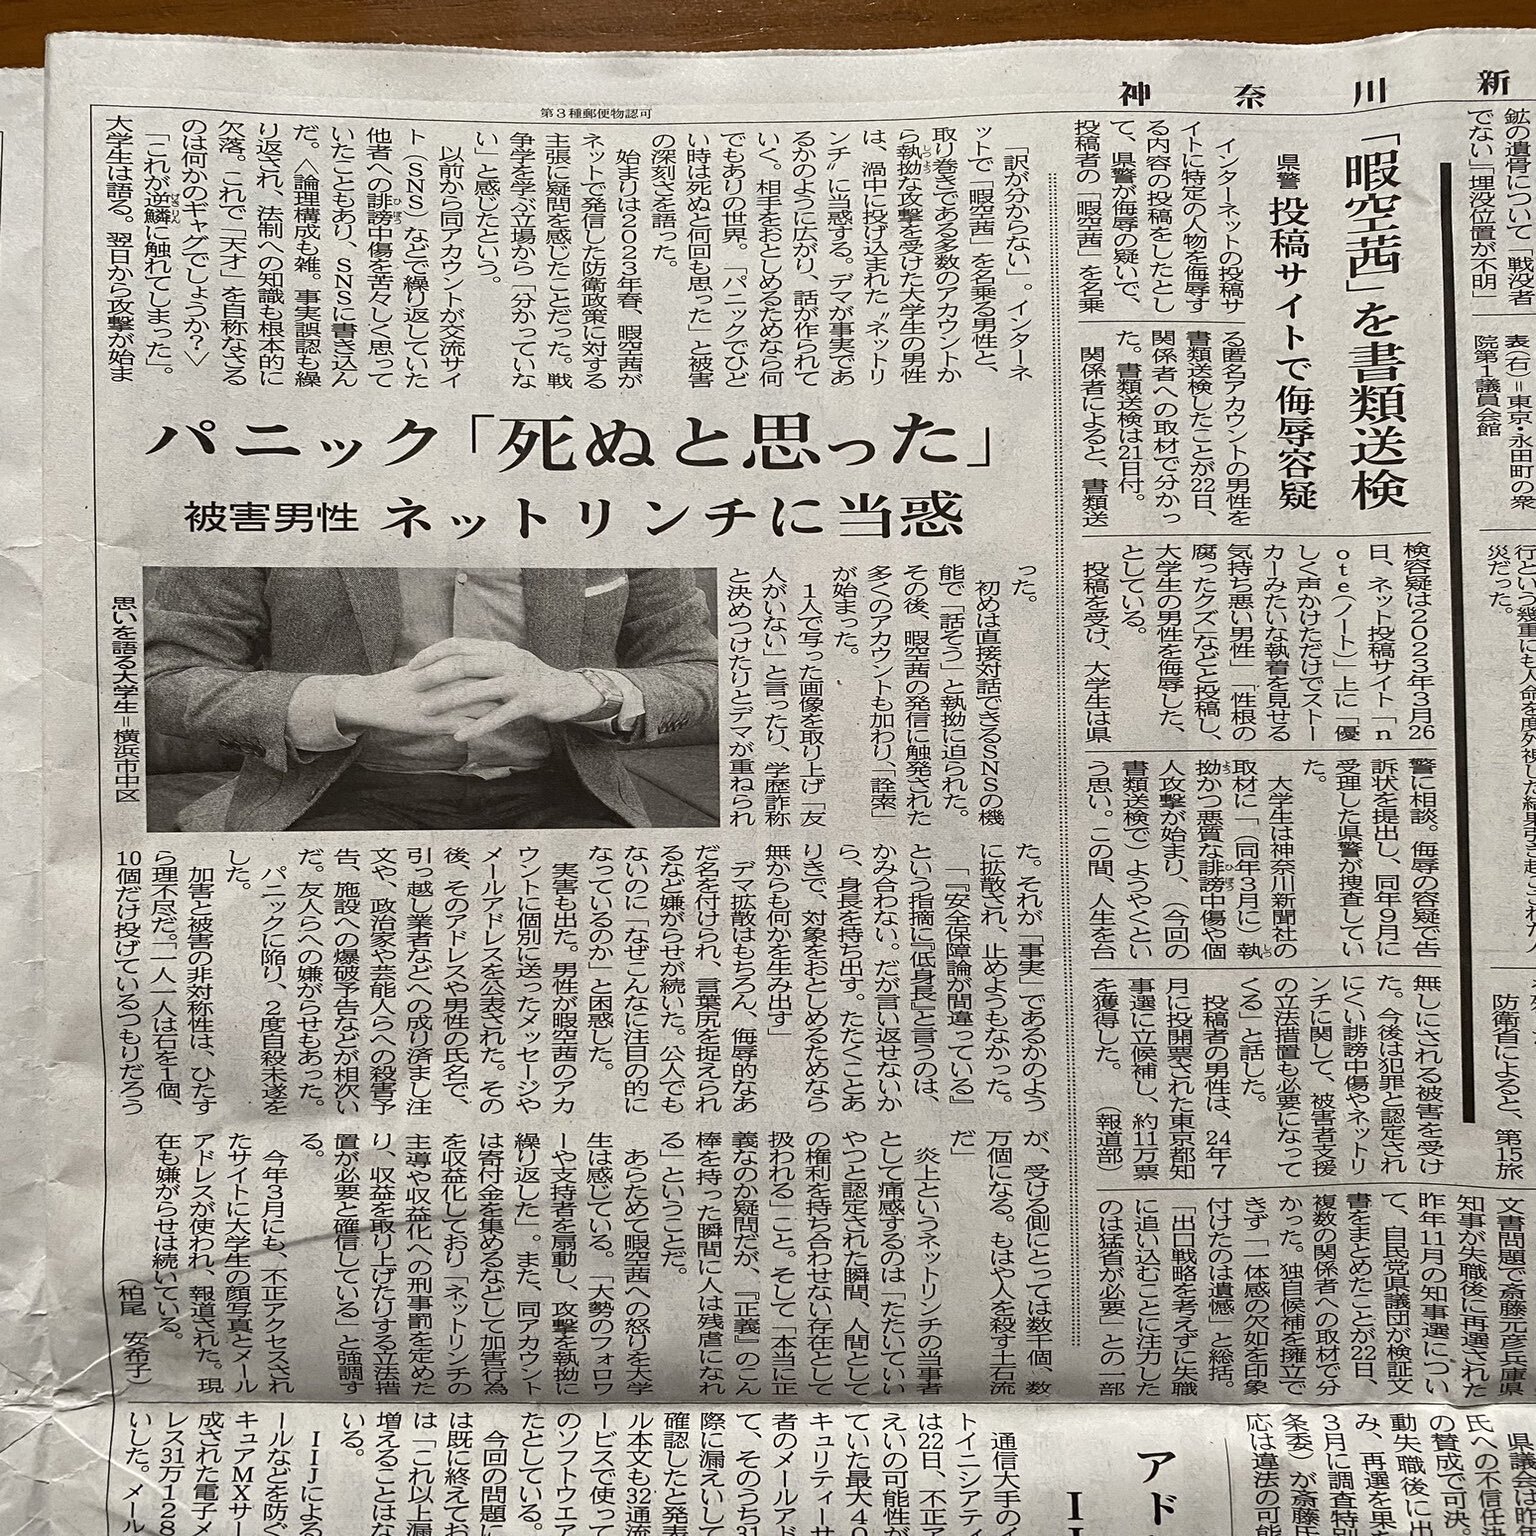 神奈川新
第3種郵便物認可
鉱の遺骨について「戦没者
でない」「埋没位置が不明」
表(右)=東京・永田町の衆
院第1議員会館
災だった。
防衛省によると、第15旅
「暇空茜」を書類送検
県警 投稿サイトで侮辱容疑
インターネットの投稿サ
イトに特定の人物を侮辱す
る内容の投稿をしたとし
て、県警が侮辱の疑いで、
投稿者の「暇空茜」を名乗
る匿名アカウントの男性を
書類送検したことが22日、
関係者への取材で分かっ
た。書類送検は21日付。
関係者によると、書類送
検容疑は2023年3月26
日、ネット投稿サイト「n
ote(ノート)」上に「優
しく声かけただけでストー
カーみたいな執着を見せる
気持ち悪い男性」「性根の
腐ったクズ」などと投稿し、
大学生の男性を侮辱した、
としている。
投稿を受け、大学生は県
警に相談。侮辱の容疑で告
訴状を提出し、同年9月に
受理した県警が捜査してい
た。
大学生は神奈川新聞社の
取材に「(同年3月に)執
拗かつ悪質な誹謗中傷や個
人攻撃が始まり、(今回の
書類送検で)ようやくとい
う思い。この間、人生を台
無しにされる被害を受け
た。今後は犯罪と認定され
にくい誹謗中傷やネットリ
ンチに関して、被害者支援
の立法措置も必要になって
くる」と話した。
投稿者の男性は、24年7
月に投開票された東京都知
事選に立候補し、約11万票
を獲得した。 (報道部)
パニック「死ぬと思った」
被害男性 ネットリンチに当惑
「訳が分からない」。インターネ
ットで「暇空茜」を名乗る男性と、
取り巻きである多数のアカウントか
ら執拗な攻撃を受けた大学生の男性
は、渦中に投げ込まれた〝ネットリ
ンチ〟に当惑する。デマが事実であ
るかのように広がり、話が作られて
いく。相手をおとしめるためなら何
でもありの世界。「パニックでひど
い時は死ぬと何回も思った」と被害
の深刻さを語った。
始まりは2023年春、暇空茜が
ネットで発信した防衛政策に対する
主張に疑問を感じたことだった。戦
争学を学ぶ立場から「分かっていな
い」と感じたという。
以前から同アカウントが交流サイ
ト(SNS)などで繰り返していた
他者への誹謗中傷を苦々しく思って
いたこともあり、SNSに書き込ん
だ。〈論理構成も雑。事実誤認も繰
り返され、法制への知識も根本的に
欠落。これで「天才」を自称なさる
のは何かのギャグでしょうか?〉
「これが逆鱗に触れてしまった」。
大学生は語る。翌日から攻撃が始ま
った。
初めは直接対話できるSNSの機
能で「話そう」と執拗に迫られた。
その後、暇空茜の発信に触発された
多くのアカウントも加わり、「詮索」
が始まった。
1人で写った画像を取り上げ「友
人がいない」と言ったり、学歴詐称
と決めつけたりとデマが重ねられ
思いを語る大学生=横浜市中区
た。それが「事実」であるかのよう
に拡散され、止めようもなかった。
「『安全保障論が間違っている』
という指摘に『低身長』と言うのは、
かみ合わない。だが言い返せないか
ら、身長を持ち出す。たたくことあ
りきで、対象をおとしめるためなら
無からも何かを生み出す」
デマ拡散はもちろん、侮辱的なあ
だ名を付けられ、言葉尻を捉えられ
るなど嫌がらせが続いた。公人でも
ないのに「なぜこんなに注目の的に
なっているのか」と困惑した。
実害も出た。男性が暇空茜のアカ
ウントに個別に送ったメッセージや
メールアドレスを公表された。その
後、そのアドレスや男性の氏名で、
引っ越し業者などへの成り済まし注
文や、政治家や芸能人らへの殺害予
告、施設への爆破予告などが相次い
だ。友人らへの嫌がらせもあった。
パニックに陥り、2度自殺未遂を
した。
加害と被害の非対称性は、ひたす
ら理不尽だ。「一人一人は石を1個、
10個だけ投げているつもりだろう
が、受ける側にとっては数千個、数
万個になる。もはや人を殺す土石流
だ」
炎上というネットリンチの当事者
として痛感するのは「たたいていい
やつと認定された瞬間、人間として
の権利を持ち合わせない存在として
扱われる」こと。そして「本当に正
義なのか疑問だが、『正義』のこん
棒を持った瞬間に人は残虐になれ
る」ということだ。
あらためて暇空茜への怒りを大学
生は感じている。「大勢のフォロワ
ーや支持者を扇動し、攻撃を執拗に
繰り返した」。また、同アカウント
は寄付金を集めるなどして加害行為
を収益化しており「ネットリンチの
主導や収益化への刑事罰を定めた
り、収益を取り上げたりする立法措
置が必要と確信している」と強調す
る。
今年3月にも、不正アクセスされ
たサイトに大学生の顔写真とメール
アドレスが使われ、報道された。現
在も嫌がらせは続いている。
(柏尾 安希子)
文書問題で斎藤元彦兵庫県
知事が失職後に再選された
昨年11月の知事選につい
て、自民党県議団が検証文
書をまとめたことが22日、
複数の関係者への取材で分
かった。独自候補を擁立で
きず「一体感の欠如を印象
付けたのは遺憾」と総括。
「出口戦略を考えずに失職
に追い込むことに注力した
のは猛省が必要」との一部
県議会は昨
氏への不信任決
の賛成で可決
動失職後に出
み、再選を果
3月に調査特別
条委)が斎藤氏
応は違法の可能
アド
II
通信大手のイ
トイニシアティ
は22日、不正ア
えいの可能性が
ていた最大40
キュリティーサ
者のメールアド
て、そのうち31
際に漏えいして
確認したと発表
ル本文も32通流
ービスで使って
のソフトウエア
たとしている。
今回の問題に
は既に終えてお
は「これ以上漏
増えることはな
いる。
IIJによる
ールなどを防ぐ
キュアMXサー
成された電子メ
レス31万128
いした。メール